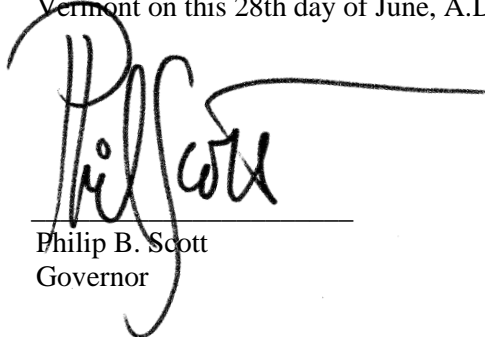 Vermont on this 28th day of June, A.D
Phil Scott
Philip B. Scott
Governor